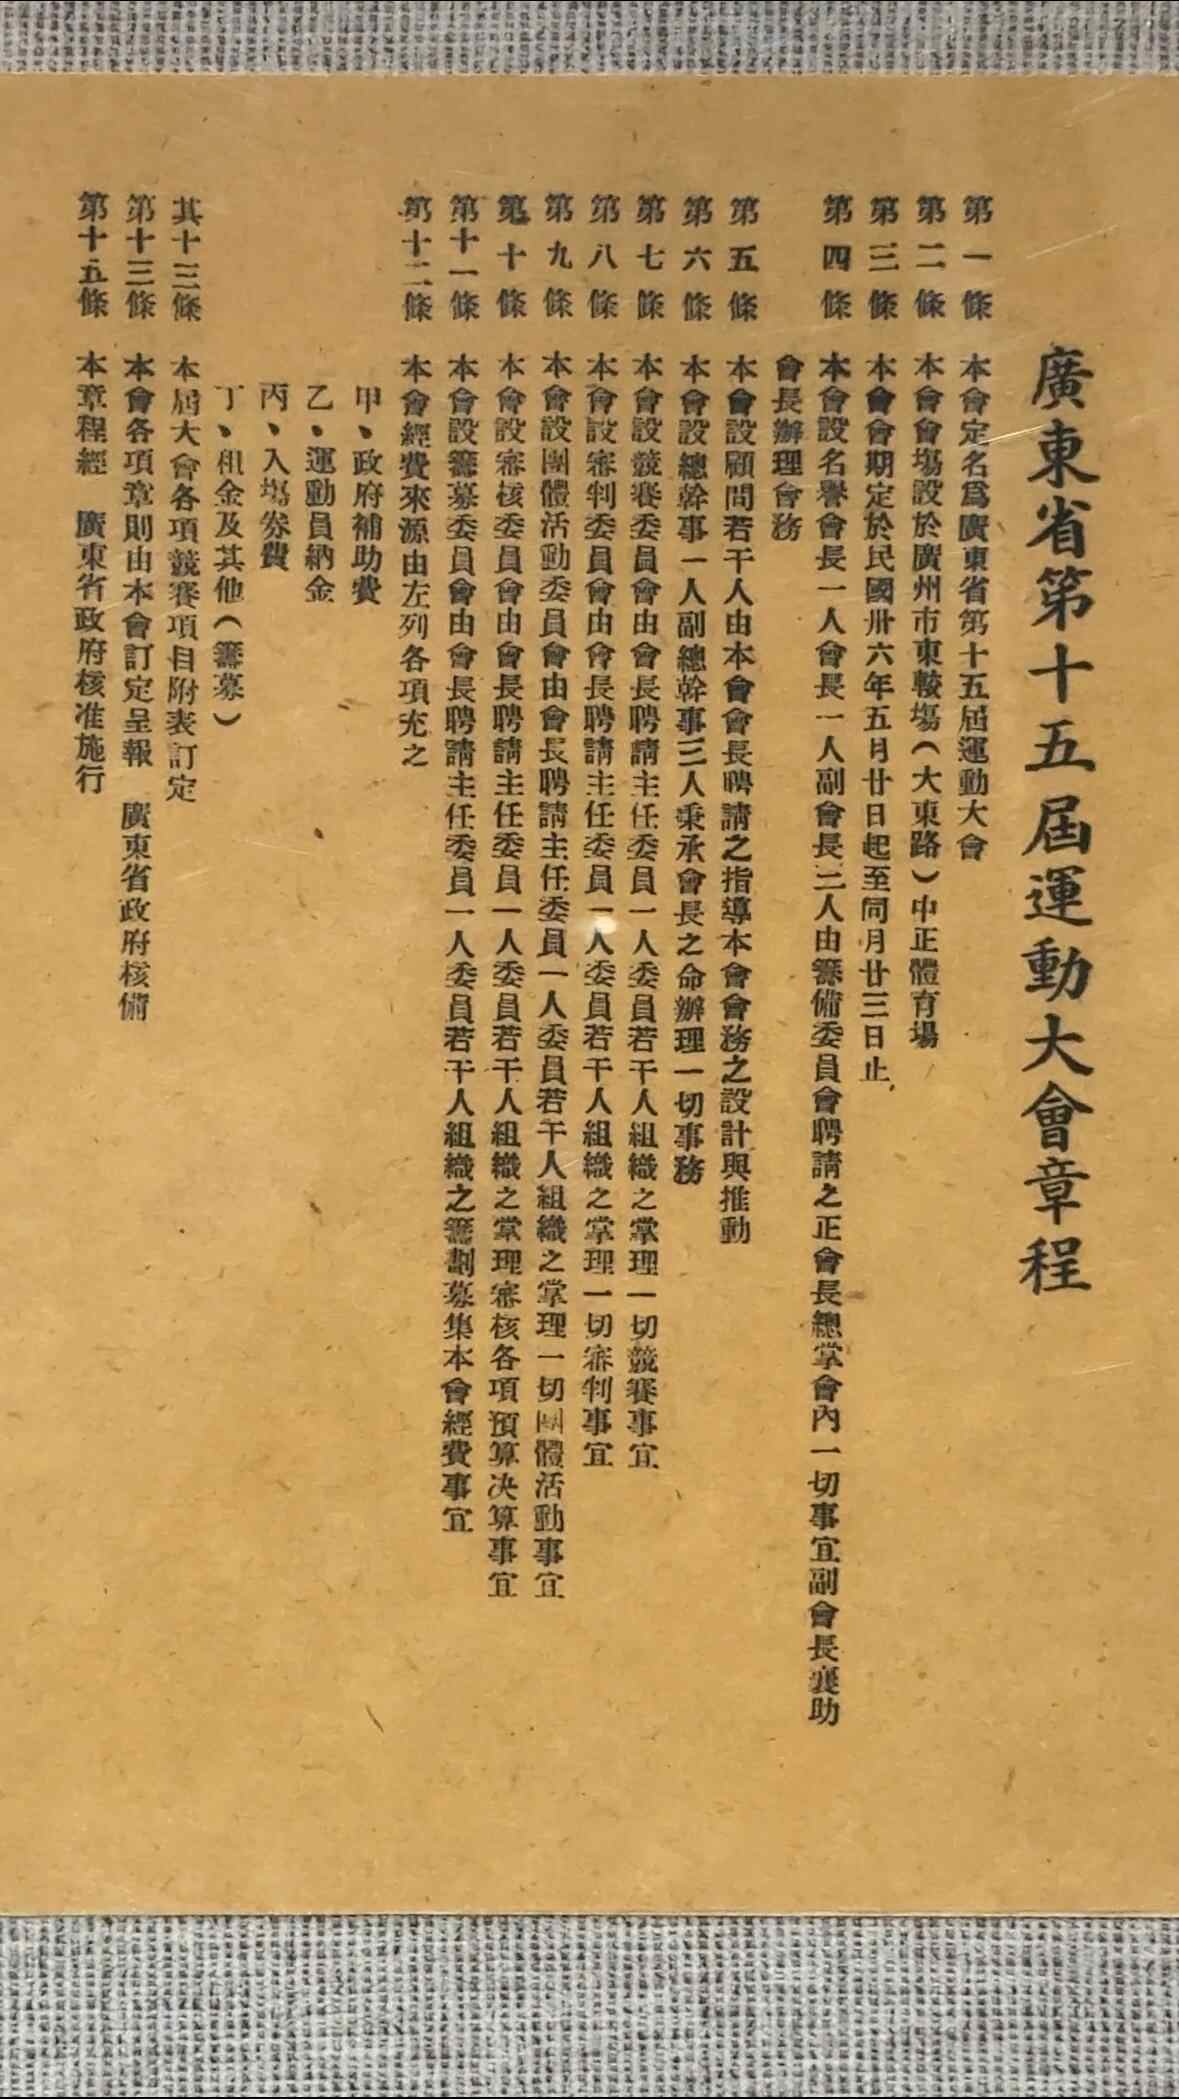 廣東省第十五屆運動大會章程
第一條 本會定名爲廣東省第十五屆運動大會
第二條 本會會塲設於廣州市東較塲（大東路）中正體育場
第三條 本會會期定於民國卅六年五月廿日起至同月廿三日止
第四條 本會設名譽會長一人會長一人副會長三人由籌備委員會聘請之正會長總掌會內一切事宜副會長襄助
會長辦理會務
第五條 本會設顧問若干人由本會會長聘請之指導本會會務之設計與推動
第六條 本會設總幹事一人副總幹事三人秉承會長之命辦理一切事務
第七條 本會設競賽委員會由會長聘請主任委員一人委員若干人組織之掌理一切競賽事宜
第八條 本會設審判委員會由會長聘請主任委員一人委員若干人組織之掌理一切審判事宜
第九條 本會設團體活動委員會由會長聘請主任委員一人委員若干人組織之掌理一切團體活動事宜
第十條 本會設審核委員會由會長聘請主任委員一人委員若干人組織之掌理審核各項預算决算事宜
第十一條 本會設籌募委員會由會長聘請主任委員一人委員若干人組織之籌劃募集本會經費事宜
第十二條 本會經費來源由左列各項充之
甲、政府補助費
乙、運動員納金
丙、入塲券費
丁、租金及其他（籌募）
其十三條 本屆大會各項競賽項目附表訂定
第十三條 本會各項章則由本會訂定呈報 廣東省政府核備
第十五條 本章程經 廣東省政府核准施行